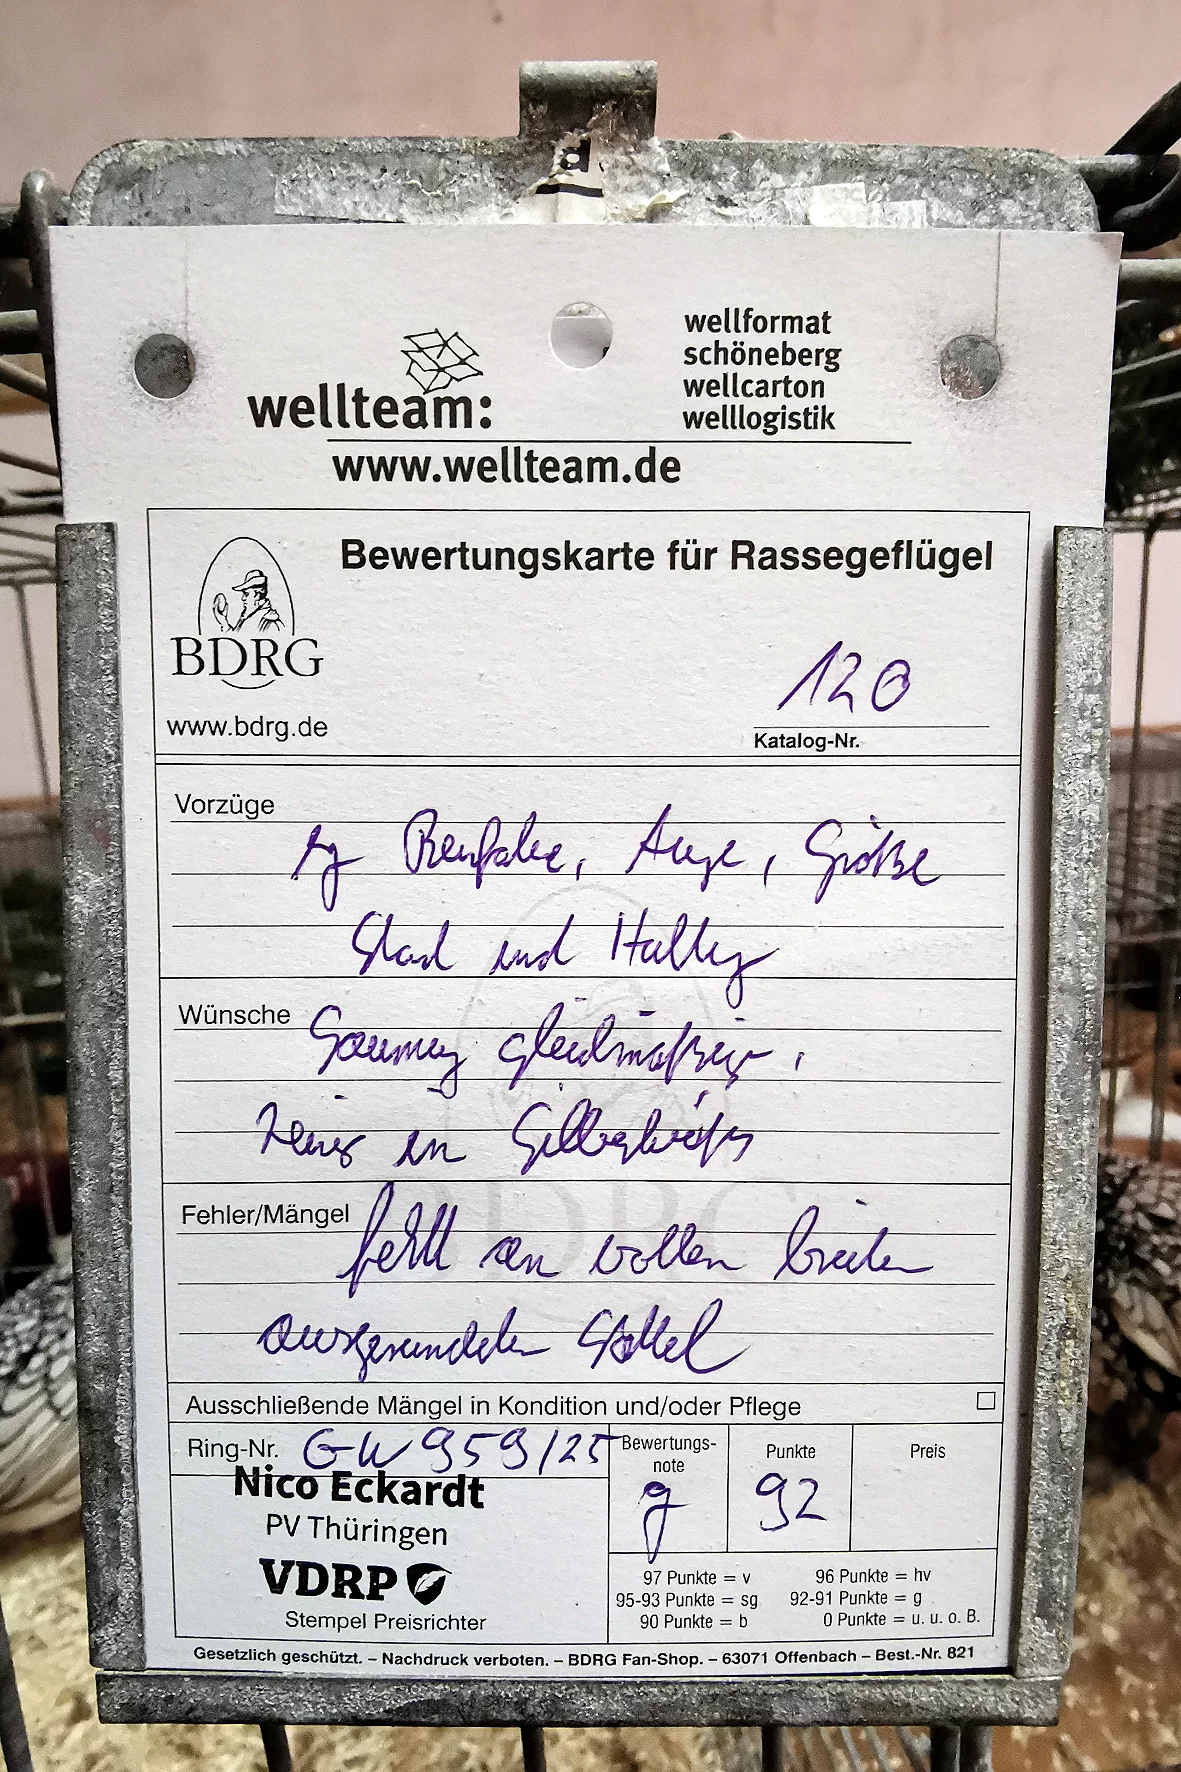 wellteam:
wellformat
schöneberg
wellcarton
welllogistik
www.wellteam.de
BDRG
www.bdrg.de
Bewertungskarte für Rassegeflügel
120
Katalog-Nr.
Vorzüge
Auge, Größe
Stand und Haltg
Wünsche
Saumung gleichmäßiger,
in
Fehler/Mängel
fehlt an vollen breiten
ausgerundeten Sattel
Ausschließende Mängel in Kondition und/oder Pflege
Ring-Nr. GW 959/25
Nico Eckardt
PV Thüringen
VDRP
Stempel Preisrichter
Bewertungs-
note
g
Punkte
92
Preis
97 Punkte = v 96 Punkte = hv
95-93 Punkte = sg 92-91 Punkte = g
90 Punkte = b 0 Punkte = u. u. o. B.
Gesetzlich geschützt. – Nachdruck verboten. – BDRG Fan-Shop. – 63071 Offenbach – Best.-Nr. 821